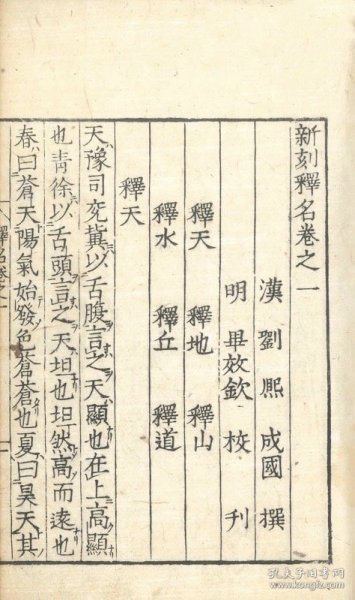 新刻釋名卷之一
漢 劉熙 成國 撰
明 畢效欽 校刊
釋天 釋地 釋山
釋水 釋丘 釋道
釋天
天豫司兗冀以舌腹言之天顯也在上高顯
也青徐以舌頭言之天坦也坦然高而遠也
春曰蒼天陽氣始發色蒼蒼也夏曰昊天其
釋名卷之一
孔夫子旧书网